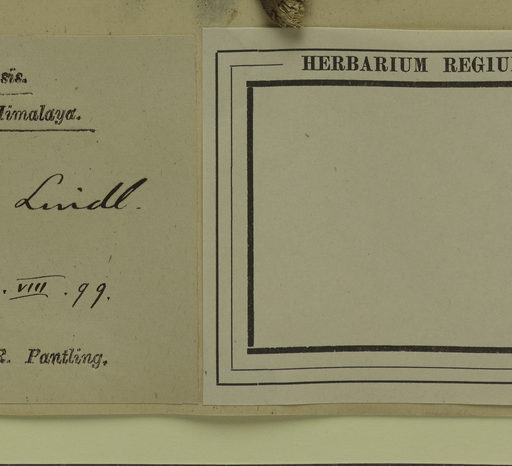 sis.
Himalaya.
Lindl.
. VIII . 99.
R. Pantling.
HERBARIUM REGIU